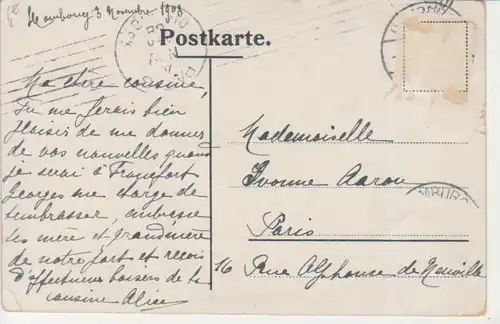 Hambourg 3 Novembre 1908
Postkarte.
Ma chère cousine,
Tu me ferais bien
plaisir de me donner
de vos nouvelles quand
je serai à Francfort
Georges me charge de
t'embrasser, embrasse
tes mère et grandmère
de notre part et reçois
d'affectueux baisers de ta
cousine Alice
Mademoiselle
Yvonne Aaron
Paris
16 Rue Alphonse de Neuville